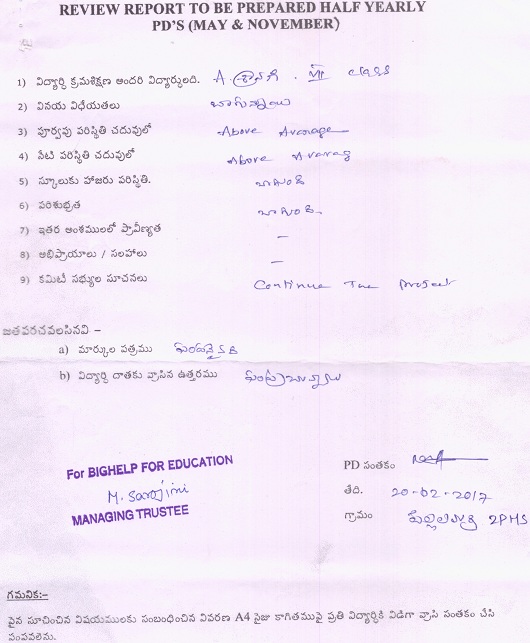 REVIEW REPORT TO BE PREPARED HALF YEARLY
PD'S (MAY & NOVEMBER)
1) విద్యార్థి క్రమశిక్షణ అందరి విద్యార్థులది. A. class
2) వినయ విధేయతలు బాగున్నాయి
3) పూర్వపు పరిస్థితి చదువులో Above Avarage
4) నేటి పరిస్థితి చదువులో Above Avarag
5) స్కూలుకు హాజరు పరిస్థితి. బాగుంది
6) పరిశుభ్రత బాగుంది.
7) ఇతర అంశములలో ప్రావీణ్యత –
8) అభిప్రాయాలు / సలహాలు –
9) కమిటీ సభ్యుల సూచనలు Continue The
జతపరచవలసినవి –
a) మార్కుల పత్రము పంపనైనది
b) విద్యార్థి దాతకు వ్రాసిన ఉత్తరము
For BIGHELP FOR EDUCATION
M. Sarojini
MANAGING TRUSTEE
PD సంతకం
తేది. 20-02-2017
గ్రామం ZPHS
గమనిక:–
పైన సూచించిన విషయములకు సంబంధించిన వివరణ A4 సైజు కాగితముపై ప్రతి విద్యార్థికి విడిగా వ్రాసి సంతకం చేసి
పంపవలెను.